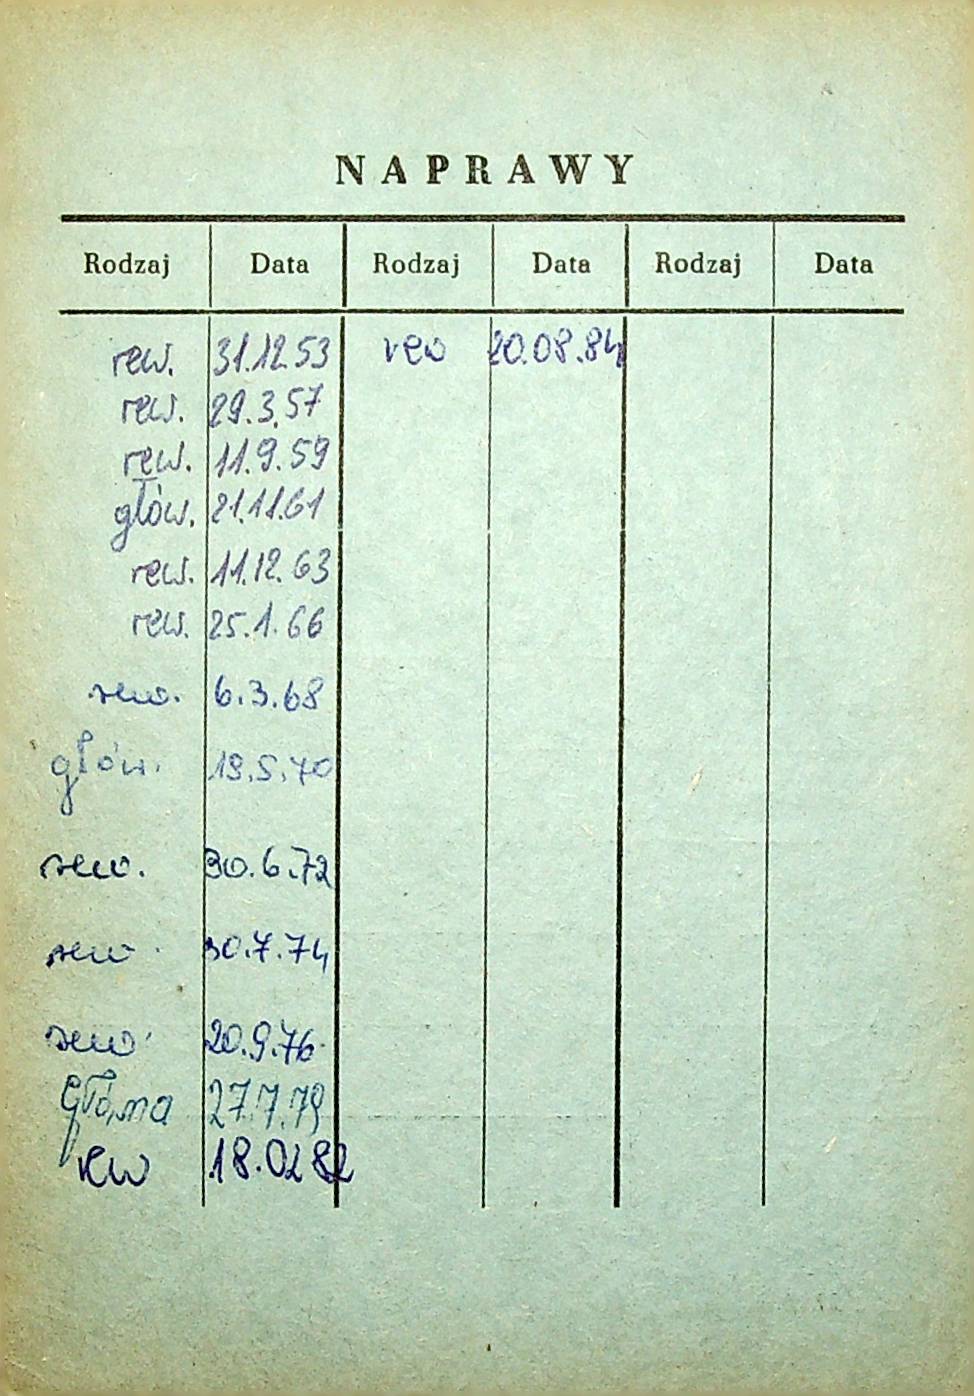 NAPRAWY
Rodzaj Data Rodzaj Data Rodzaj Data
rew. 31.12.53 rew 20.08.84
rew. 29.3.57
rew. 11.9.59
głów. 21.11.61
rew. 11.12.63
rew. 25.1.66
rew. 6.3.68
głów. 19.5.70
rew. 30.6.72
rew. 30.7.74
rew. 20.9.76
Główna 27.7.79
rew 18.02 82